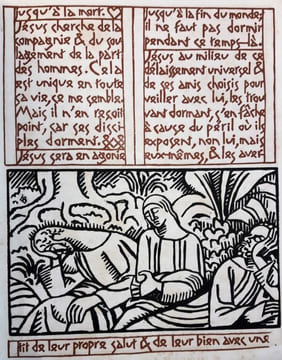 jusqu'à la mort.
Jésus cherche de la
compagnie & du sou
lagement de la part
des hommes. Cela
est unique en toute
sa vie, ce me semble.
Mais il n'en reçoit
point, car ses disci
ples dorment.
Jésus sera en agonie
jusqu'à la fin du monde;
il ne faut pas dormir
pendant ce temps-là.
Jésus au milieu de ce
délaissement universel &
de ses amis choisis pour
veiller avec lui, les trou
vant dormant, s'en fâche
à cause du péril où ils
exposent, non lui, mais
eux-mêmes, & les aver
tit de leur propre salut & de leur bien avec une